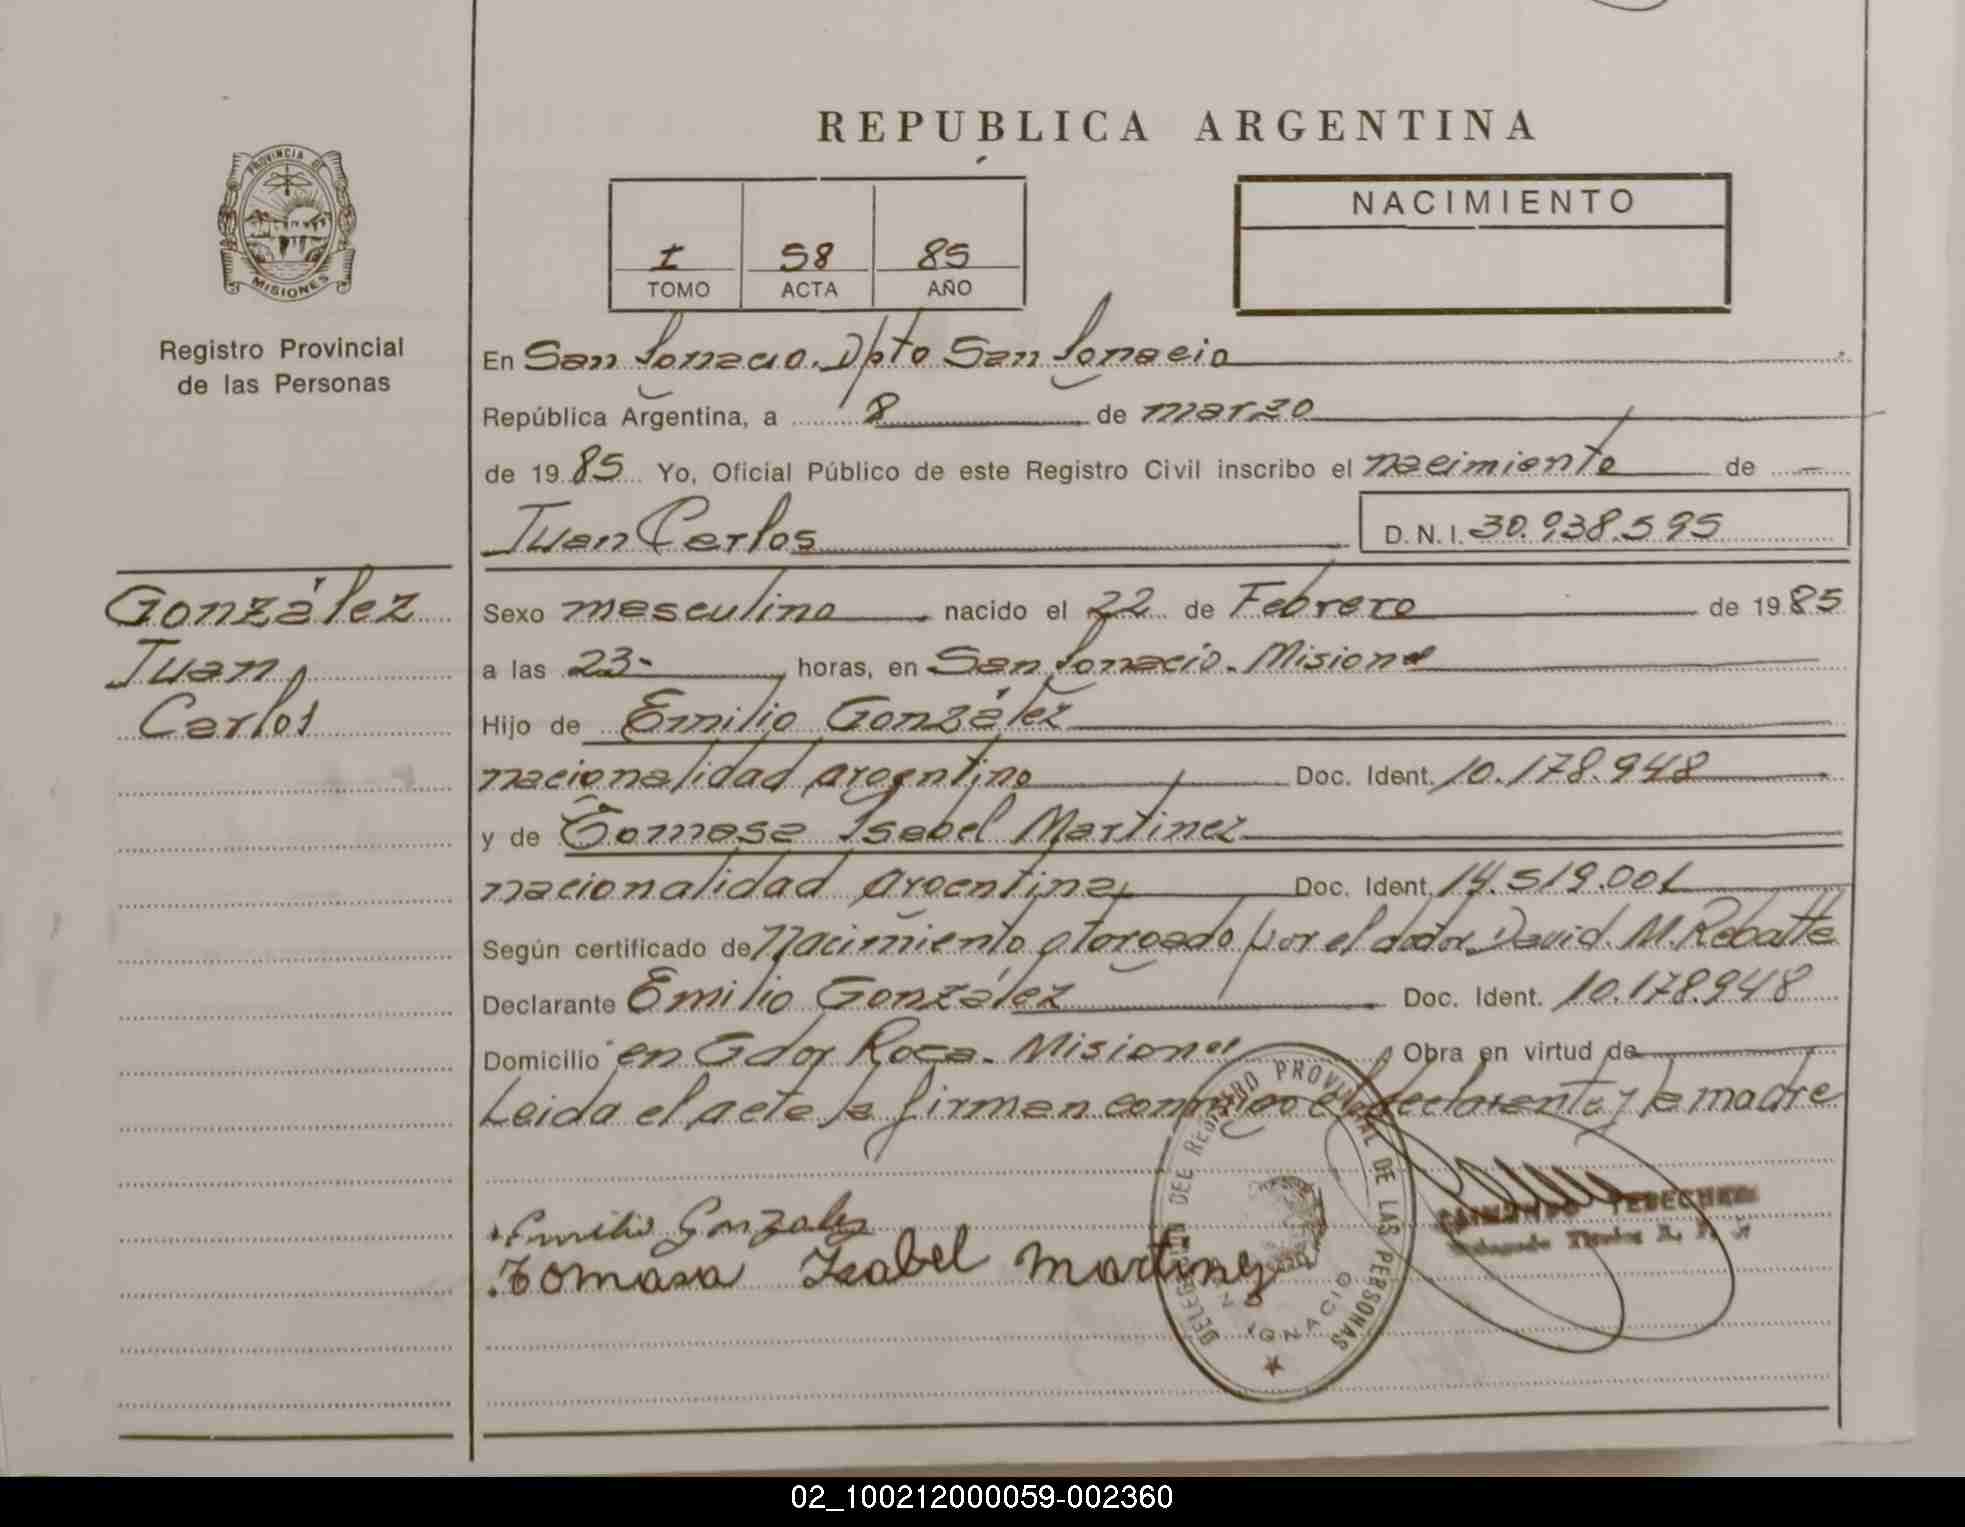 REPUBLICA ARGENTINA
PROVINCIA DE
MISIONES
Registro Provincial
de las Personas
I 58 85
TOMO ACTA AÑO
NACIMIENTO
En San Ignacio. Dpto San Ignacio
República Argentina, a 8 de marzo
de 19 85 Yo, Oficial Público de este Registro Civil inscribo el nacimiento de
Juan Carlos D.N.I. 30.938.595
González
Juan
Carlos
Sexo masculino nacido el 22 de Febrero de 19 85
a las 23- horas, en San Ignacio. Misiones
Hijo de Emilio González
nacionalidad argentino Doc. Ident. 10.178.948
y de Tomasa Isabel Martinez
nacionalidad argentina Doc. Ident. 14.519.001
Según certificado de Nacimiento otorgado por el doctor David M. Rebatte
Declarante Emilio González Doc. Ident. 10.178.948
Domicilio en Gdor Roca. Misiones Obra en virtud de
Leida el acta la firman conmigo el declarante y la madre
Emilio Gonzalez
Tomasa Isabel Martinez
DELEGACION DEL REGISTRO PROVINCIAL DE LAS PERSONAS
SAN IGNACIO
02_100212000059-002360